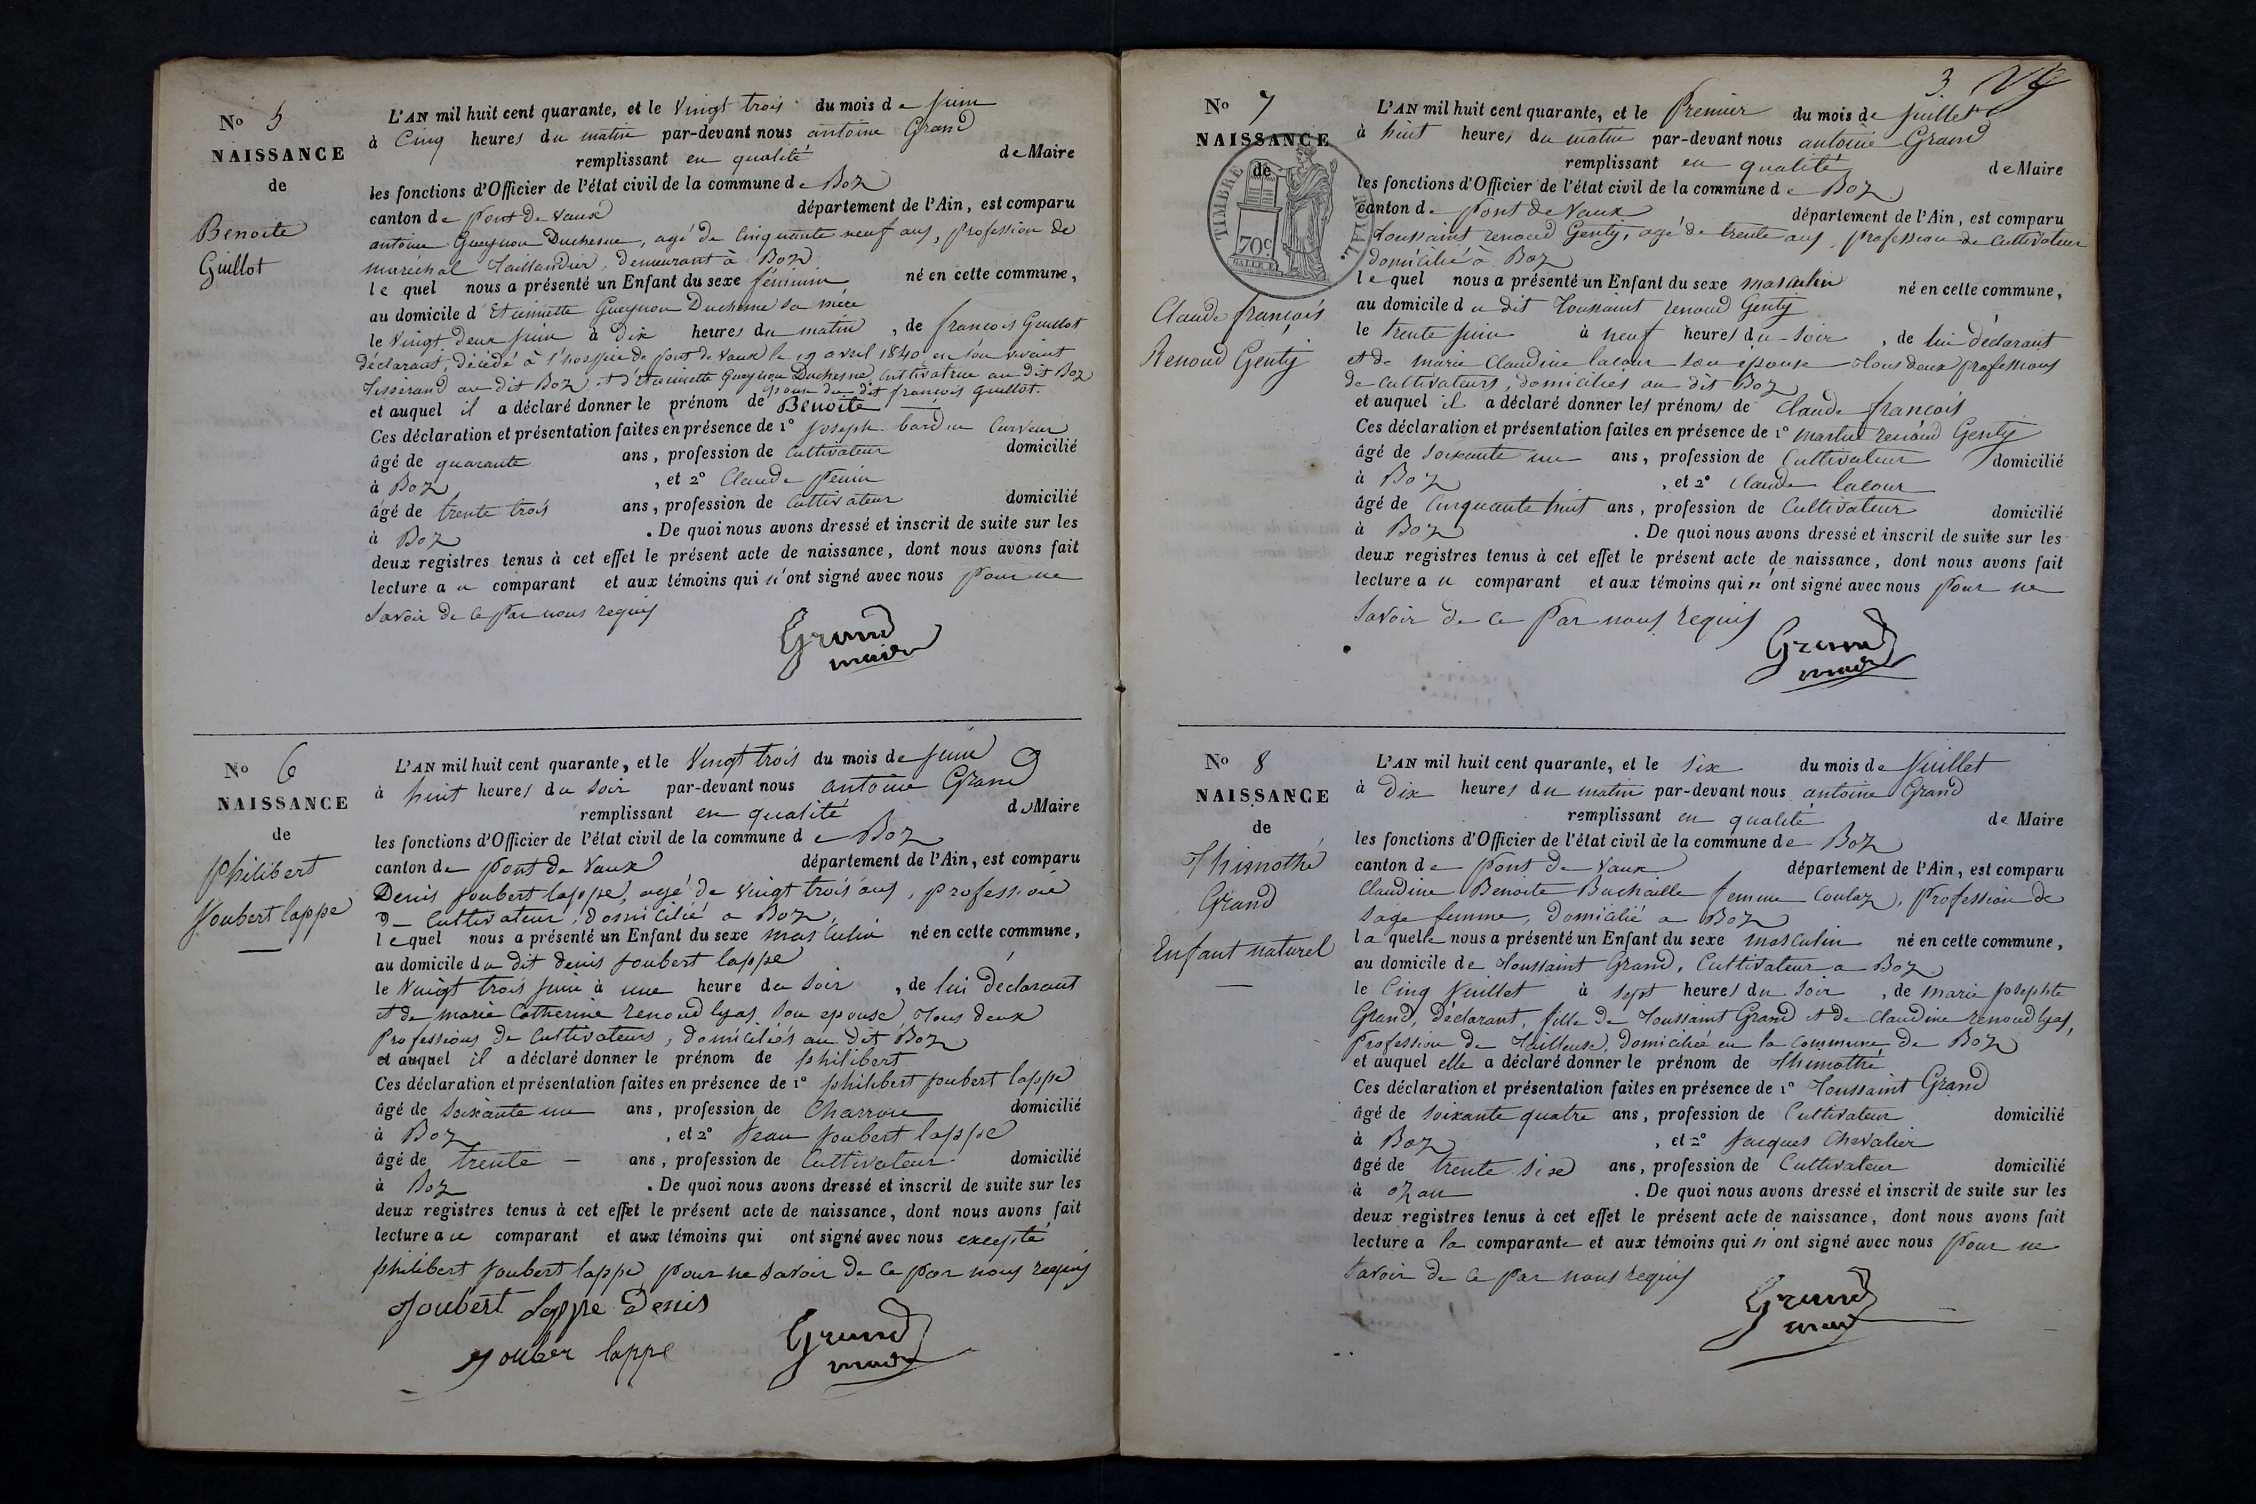 No 5
NAISSANCE
de
Benoite
Guillot
L'AN mil huit cent quarante, et le Vingt trois du mois de juin
à Cinq heures du matin par-devant nous antoine Grand
remplissant en qualité de Maire
les fonctions d'Officier de l'état civil de la commune de Boz
canton de pont de Vaux département de l'Ain, est comparu
antoine Gueynou Duchesne, agé de Cinquante neuf ans, profession de
maréchal Taillandier, demeurant à Boz
le quel nous a présenté un Enfant du sexe féminin né en cette commune,
au domicile d'Etiennette Gueynou Duchesne sa mère
le Vingt deux juin à Dix heures du matin, de francois Guillot
déclarant, décédé à l'hospice de pont de Vaux le 19 avril 1840 en son vivant
Tisserand au dit Boz et d'étiennette Gueynou Duchesne Cultivatrice au dit Boz
dit françois guillot.
et auquel il a déclaré donner le prénom de Benoite
Ces déclaration et présentation faites en présence de 1° joseph
âgé de quarante ans, profession de Cultivateur domicilié
à Boz, et 2° Claude
âgé de trente trois ans, profession de Cultivateur domicilié
à Boz. De quoi nous avons dressé et inscrit de suite sur les
deux registres tenus à cet effet le présent acte de naissance, dont nous avons fait
lecture au comparant et aux témoins qui n'ont signé avec nous pour ne
savoir de ce par nous requis
Grand
maire
No 6
NAISSANCE
de
philibert
Joubert lappe
L'AN mil huit cent quarante, et le Vingt trois du mois de juin
à huit heures du soir par-devant nous antoine Grand
remplissant en qualité de Maire
les fonctions d'Officier de l'état civil de la commune de Boz
canton de pont de Vaux département de l'Ain, est comparu
Denis Joubert lappe, agé de Vingt trois ans, profession
de Cultivateur, domicilié a Boz,
le quel nous a présenté un Enfant du sexe masculin né en cette commune,
au domicile du dit denis joubert lappe
le Vingt trois juin à une heure du soir, de lui déclarant
et de marie Catherine renoud lyas son epouse, tous deux
Professions de Cultivateurs, domiciliés au dit Boz
et auquel il a déclaré donner le prénom de philibert
Ces déclaration et présentation faites en présence de 1° philibert joubert lappe
âgé de soixante un ans, profession de Charron domicilié
à Boz, et 2° Jean Joubert lappe
âgé de trente – ans, profession de Cultivateur domicilié
à Boz. De quoi nous avons dressé et inscrit de suite sur les
deux registres tenus à cet effet le présent acte de naissance, dont nous avons fait
lecture au comparant et aux témoins qui ont signé avec nous excepté
philibert Joubert lappe pour ne savoir de ce par nous requis
Joubert lappe Denis
Jouber lappe
Grand
maire
3.
No 7
NAISSANCE
de
TIMBRE
IMPERIAL
70c.
Claude françois
Renoud Genty
L'AN mil huit cent quarante, et le Premier du mois de juillet
à huit heures du matin par-devant nous antoine Grand
remplissant en qualité de Maire
les fonctions d'Officier de l'état civil de la commune de Boz
canton de pont de Vaux département de l'Ain, est comparu
Toussaint renoud Genty, agé de trente ans, profession de Cultivateur
domicilié à Boz
le quel nous a présenté un Enfant du sexe masculin né en cette commune,
au domicile du dit Toussaint renoud Genty
le trente juin à neuf heures du soir, de lui déclarant
et de marie Claudine lacour son epouse tous deux professions
de Cultivateurs, domiciliés au dit Boz
et auquel il a déclaré donner les prénoms de Claude françois
Ces déclaration et présentation faites en présence de 1° renoud Genty
âgé de soixante un ans, profession de Cultivateur domicilié
à Boz, et 2° Claude lacour
âgé de Cinquante huit ans, profession de Cultivateur domicilié
à Boz. De quoi nous avons dressé et inscrit de suite sur les
deux registres tenus à cet effet le présent acte de naissance, dont nous avons fait
lecture au comparant et aux témoins qui n'ont signé avec nous pour ne
savoir de ce par nous requis
Grand
maire
No 8
NAISSANCE
de
Thimothé
Grand
Enfant naturel
L'AN mil huit cent quarante, et le six du mois de Juillet
à Dix heures du matin par-devant nous antoine Grand
remplissant en qualité de Maire
les fonctions d'Officier de l'état civil de la commune de Boz
canton de pont de Vaux département de l'Ain, est comparu
Claudine Benoite Buchaille femme Coulaz, Profession de
sage femme, domicilié a Boz
la quelle nous a présenté un Enfant du sexe masculin né en cette commune,
au domicile de Toussaint Grand, Cultivateur a Boz
le Cinq Juillet à sept heures du soir, de marie josephte
Grand, déclarant, fille de Toussaint Grand et de Claudine renoud lyas,
Profession de Tailleuse, domiciliée en la Commune de Boz
et auquel elle a déclaré donner le prénom de Thimothé
Ces déclaration et présentation faites en présence de 1° Toussaint Grand
âgé de soixante quatre ans, profession de Cultivateur domicilié
à Boz, et 2° Jacques Chevalier
âgé de trente six ans, profession de Cultivateur domicilié
à ozan. De quoi nous avons dressé et inscrit de suite sur les
deux registres tenus à cet effet le présent acte de naissance, dont nous avons fait
lecture a la comparante et aux témoins qui n'ont signé avec nous pour ne
savoir de ce par nous requis
Grand
maire